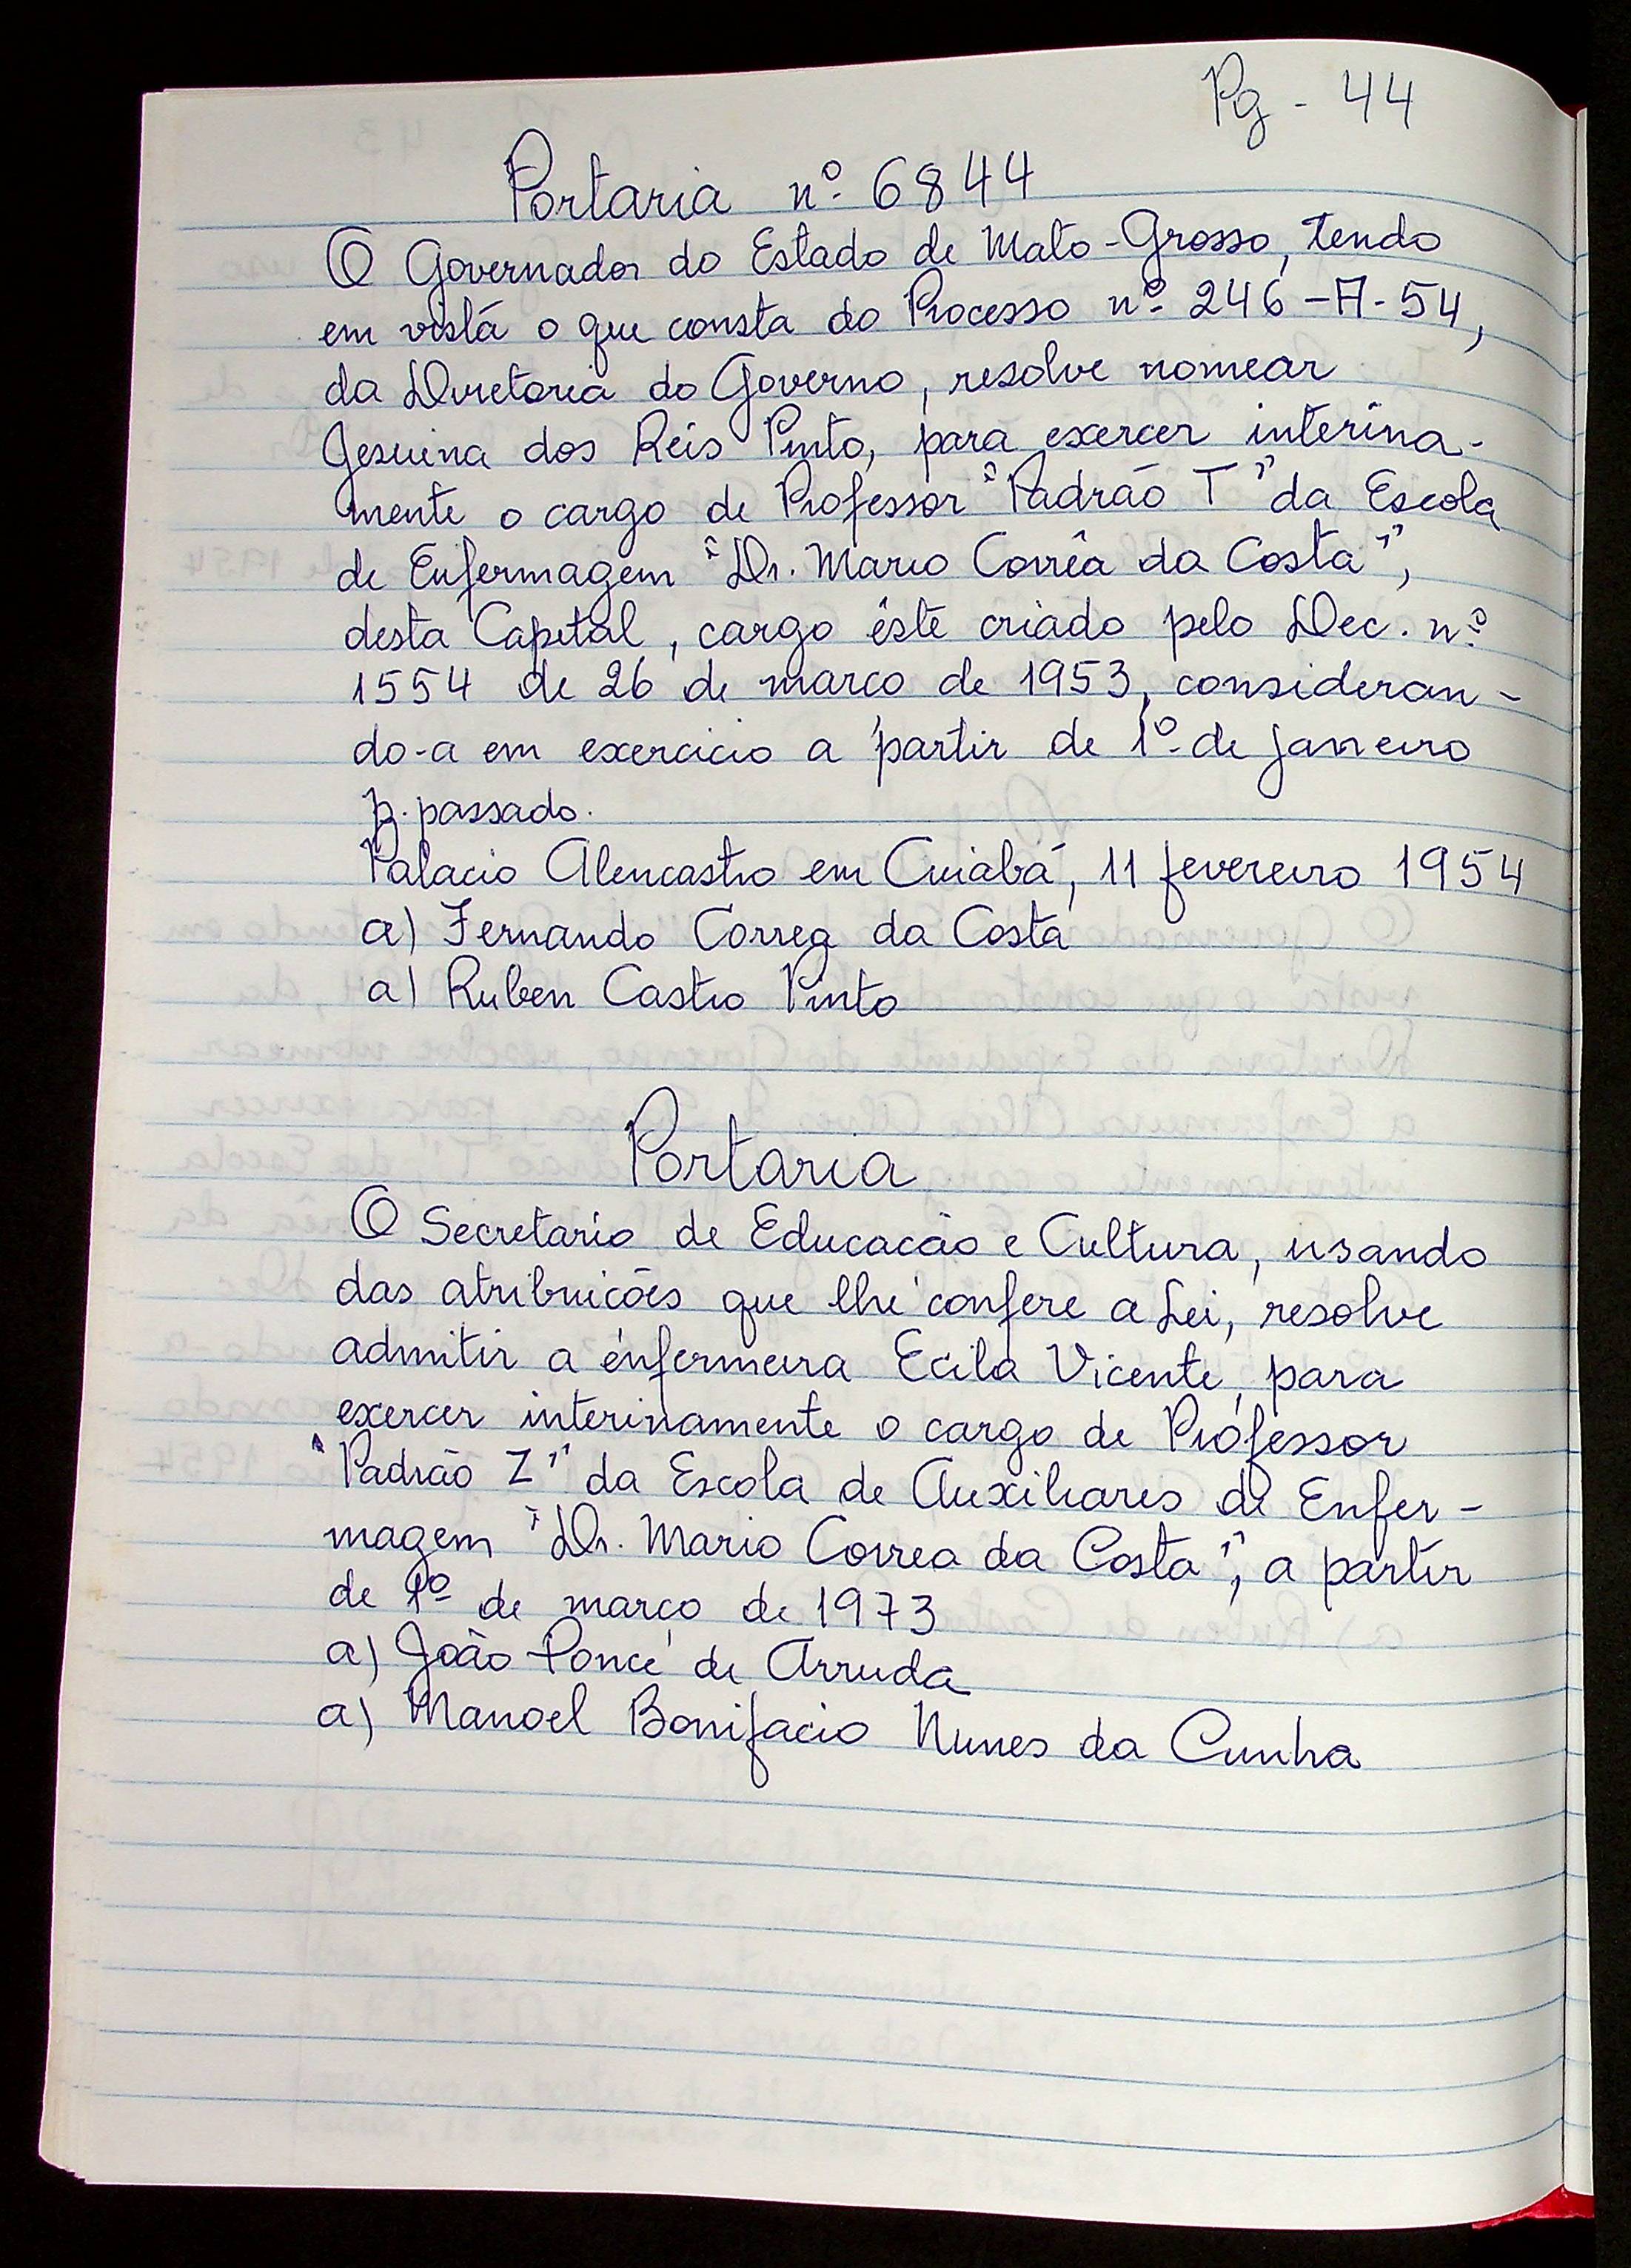 Pg - 44
Portaria nº 6844
O Governador do Estado de Mato-Grosso, tendo
em vista o que consta do Processo nº 246-A-54,
da Diretoria do Governo, resolve nomear
Jesuina dos Reis Pinto, para exercer interina-
mente o cargo de Professor "Padrão T" da Escola
de Enfermagem "Dr. Mario Corrêa da Costa",
desta Capital, cargo êste criado pelo Dec. nº
1554 de 26 de março de 1953, consideran-
do-a em exercicio a partir de 1º de janeiro
p. passado.
Palacio Alencastro em Cuiabá, 11 fevereiro 1954
a) Fernando Correa da Costa
a) Ruben Castro Pinto
Portaria
O Secretario de Educação e Cultura, usando
das atribuições que lhe confere a Lei, resolve
admitir a enfermeira Ecila Vicente, para
exercer interinamente o cargo de Professor
"Padrão Z" da Escola de Auxiliares de Enfer-
magem "Dr. Mario Correa da Costa", a partir
de 1º de março de 1973
a) João Ponce de Arruda
a) Manoel Bonifacio Nunes da Cunha